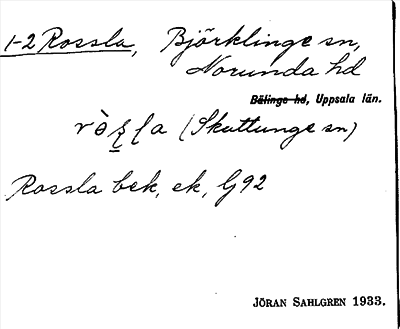 1-2 Rossla, Björklinge sn,
Norunda hd
Bälinge hd, Uppsala län.
(Skuttunge sn)
Rossla bek, ek, G92
JÖRAN SAHLGREN 1933.